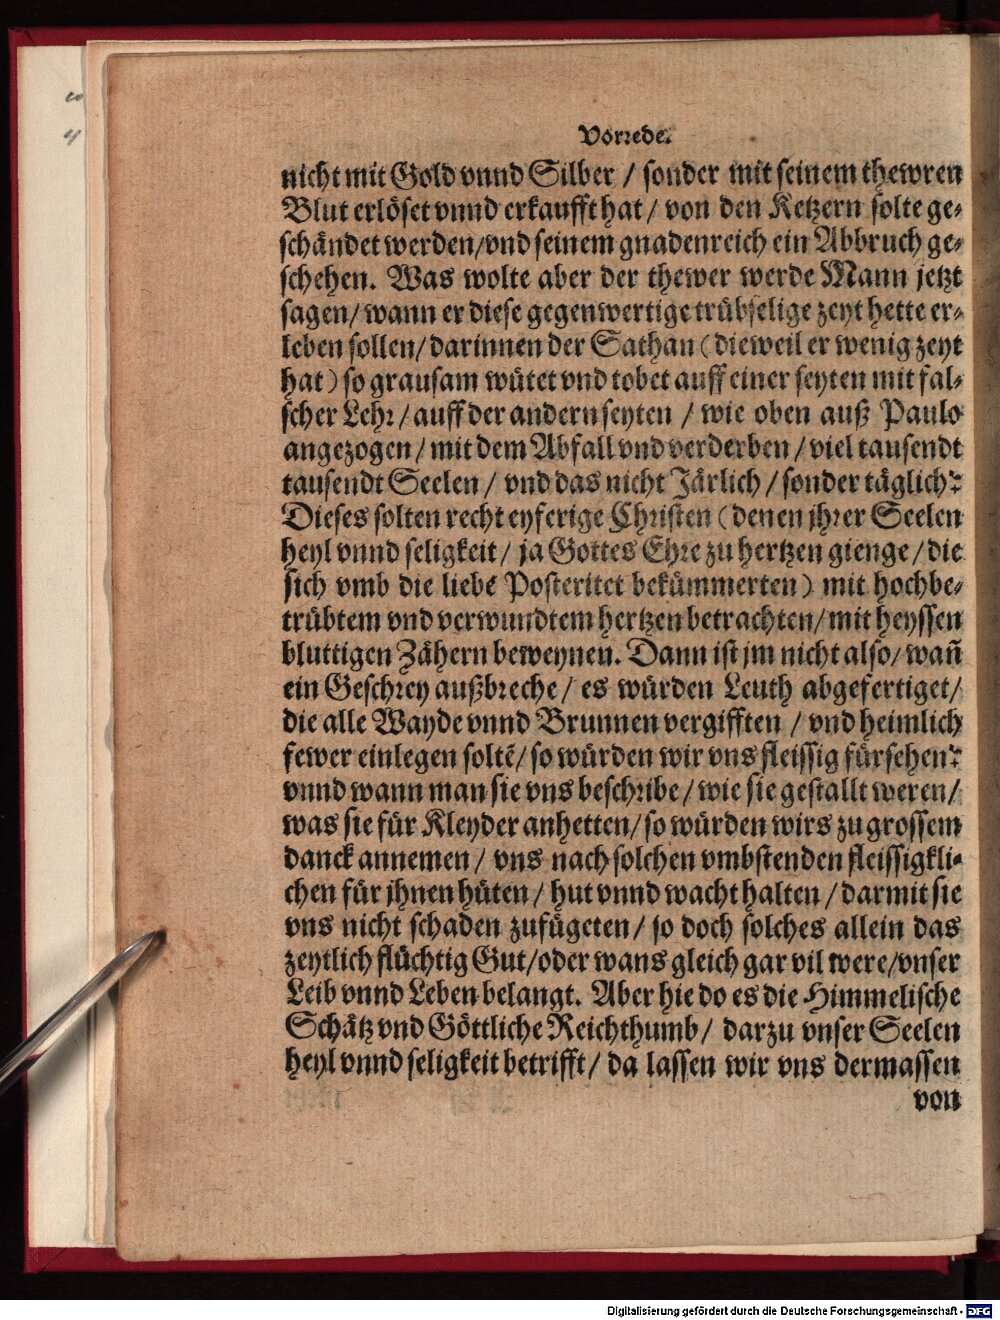 Vorrede.
nicht mit Gold vnnd Silber / sonder mit seinem thewren
Blut erlöset vnnd erkaufft hat / von den Ketzern solte ge-
schändet werden/vnd seinem gnadenreich ein Abbruch ge-
schehen. Was wolte aber der thewer werde Mann jetzt
sagen/ wann er diese gegenwertige trübselige zeyt hette er-
leben sollen/ darinnen der Sathan (dieweil er wenig zeyt
hat) so grausam wütet vnd tobet auff einer seyten mit fal-
scher Lehr/ auff der andern seyten / wie oben auß Paulo
angezogen/ mit dem Abfall vnd verderben/ viel tausendt
tausendt Seelen/ vnd das nicht Järlich/ sonder täglich?
Dieses solten recht eyferige Christen (denen jhrer Seelen
heyl vnnd seligkeit/ ja Gottes Ehre zu hertzen gienge/ die
sich vmb die liebe Posteritet bekümmerten) mit hochbe-
trübtem vnd verwundtem hertzen betrachten/ mit heyssen
bluttigen Zähern beweynen. Dann ist jm nicht also/ wañ
ein Geschrey außbreche/ es würden Leuth abgefertiget/
die alle Wayde vnnd Brunnen vergifften / vnd heimlich
fewer einlegen soltẽ/ so würden wir vns fleissig fürsehen?
vnnd wann man sie vns beschribe/ wie sie gestallt weren/
was sie für Kleyder anhetten/ so würden wirs zu grossem
danck annemen/ vns nach solchen vmbstenden fleissigkli-
chen für jhnen hüten/ hut vnnd wacht halten/ darmit sie
vns nicht schaden zufügeten/ so doch solches allein das
zeytlich flüchtig Gut/oder wans gleich gar vil were/vnser
Leib vnnd Leben belangt. Aber hie do es die Himmelische
Schätz vnd Göttliche Reichthumb/ darzu vnser Seelen
heyl vnnd seligkeit betrifft/ da lassen wir vns dermassen
von
Digitalisierung gefördert durch die Deutsche Forschungsgemeinschaft - DFG